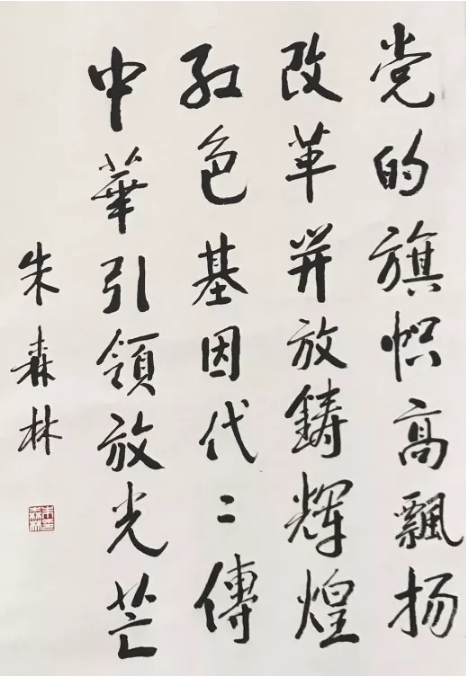 党的旗帜高飘扬
改革开放鑄辉煌
红色基因代二傳
中華引領放光芒
朱森林
朱森林